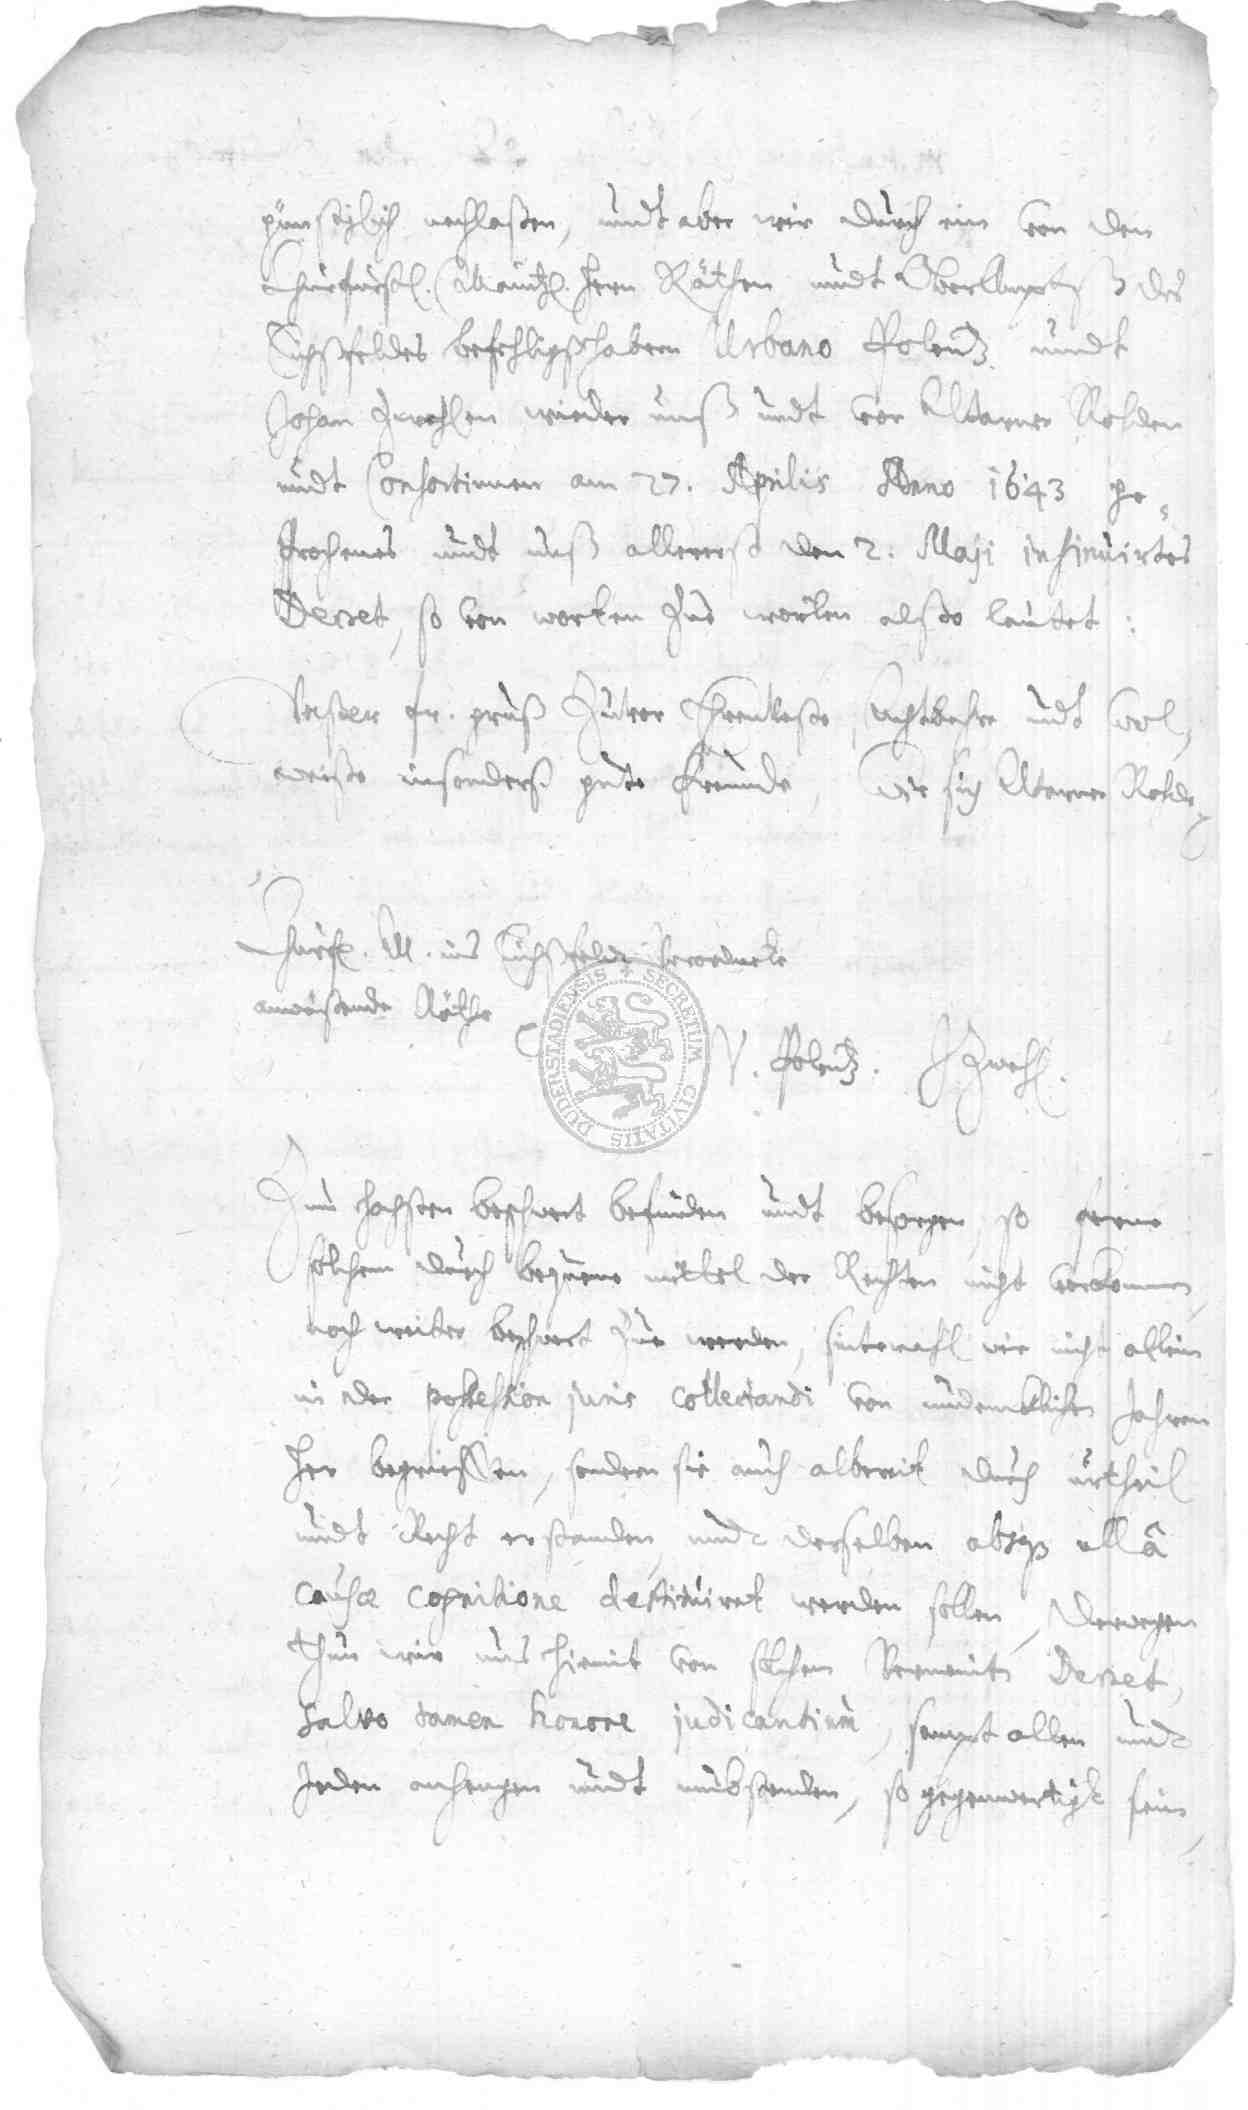 günstiglich nachlaßen, undt aber wir durch ein von den
Churfürstl. Mäintz. Hern Räthen undt OberAmpts des
Eichßfeldes befehligßhabern Urbano Polentz undt
Johan Zwehlen wieder unß undt vor Werner Rohden
undt Consortinnen am 27. Aprilis Anno 1643 ge-
sprochenes undt unß allererst den 2. Maji insinuirtes
Decret, so von worten zue worten alßo lautet:
Unßer fr. gruß Zuvor Ehrnveste, Achtbahre undt wol,
weiße insonderß gute freunde, Wie sich Werner Rohde
Churf. M. ins Eichßfeldt verordnete
anweßende Räthe
V. Polentz. Zwehl.
DUDERSTADIENSIS SECRETUM CIVITATIS
Zum hochsten beschwert befinden undt besorgen, so ferne
solchem durch bequeme mittel der Rechten nicht vorkommen,
noch weiter beschwert zue werden, sintemahl wir nicht allein
in der possession juris collectandi von undencklichen Jahren
her begrieffen, sondern sie auch albereit durch urtheil
undt Recht erstanden undt derselben absque ullâ
causæ cognitione destituiret werden sollen, Derwegen
thun wir uns hiemit von solchem Vermeinten Decret,
salvo tamen honore judicantium, sampt allen undt
Jeden anhengen undt umbstenden, so gegenwertigk sein,